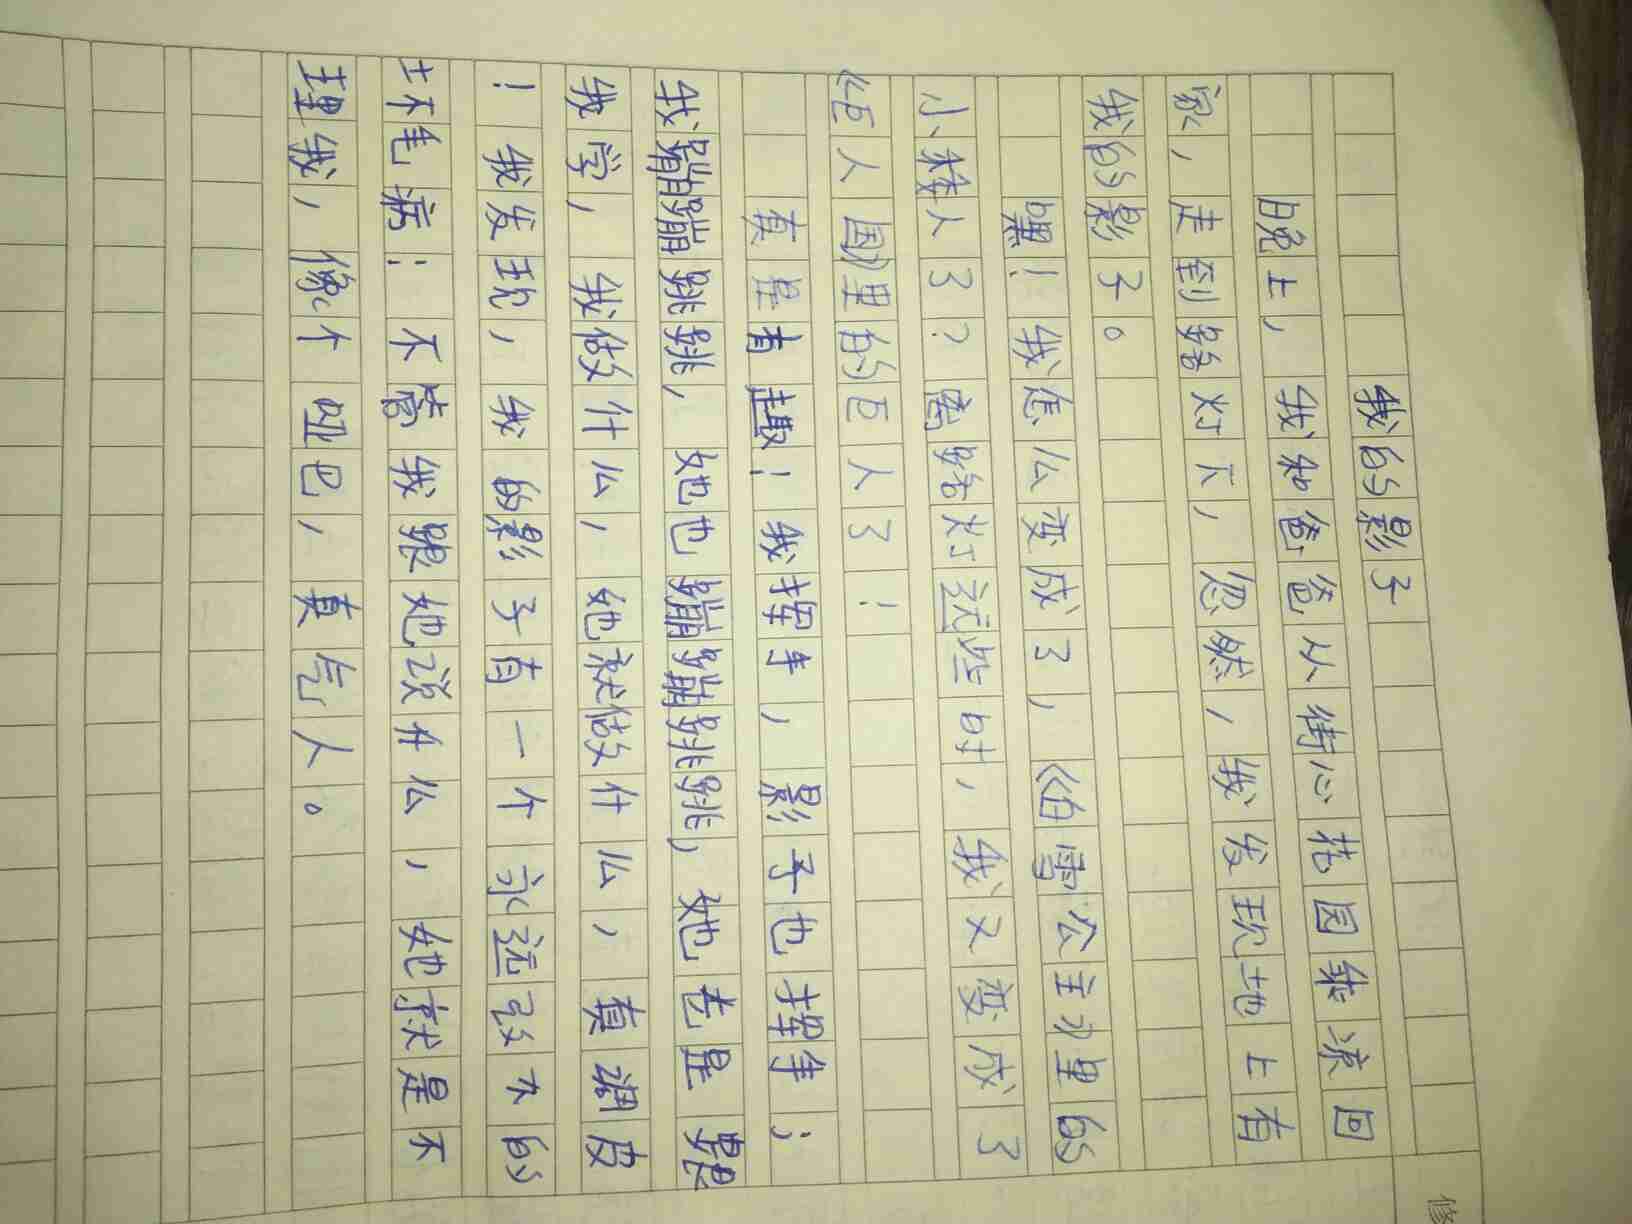 我的影子
晚上，我和爸爸从街心花园乘凉回
家，走到路灯下，忽然，我发现地上有
我的影子。
嘿！我怎么变成了，《白雪公主》里的
小矮人了？离路灯远些时，我又变成了
《巨人国》里的巨人了！
真是有趣！我挥手，影子也挥手；
我蹦蹦跳跳，她也蹦蹦跳跳，她老是跟
我学，我做什么，她就做什么，真调皮
！我发现，我的影子有一个永远改不的
坏毛病：不管我跟她说什么，她就是不
理我，像个哑巴，真气人。